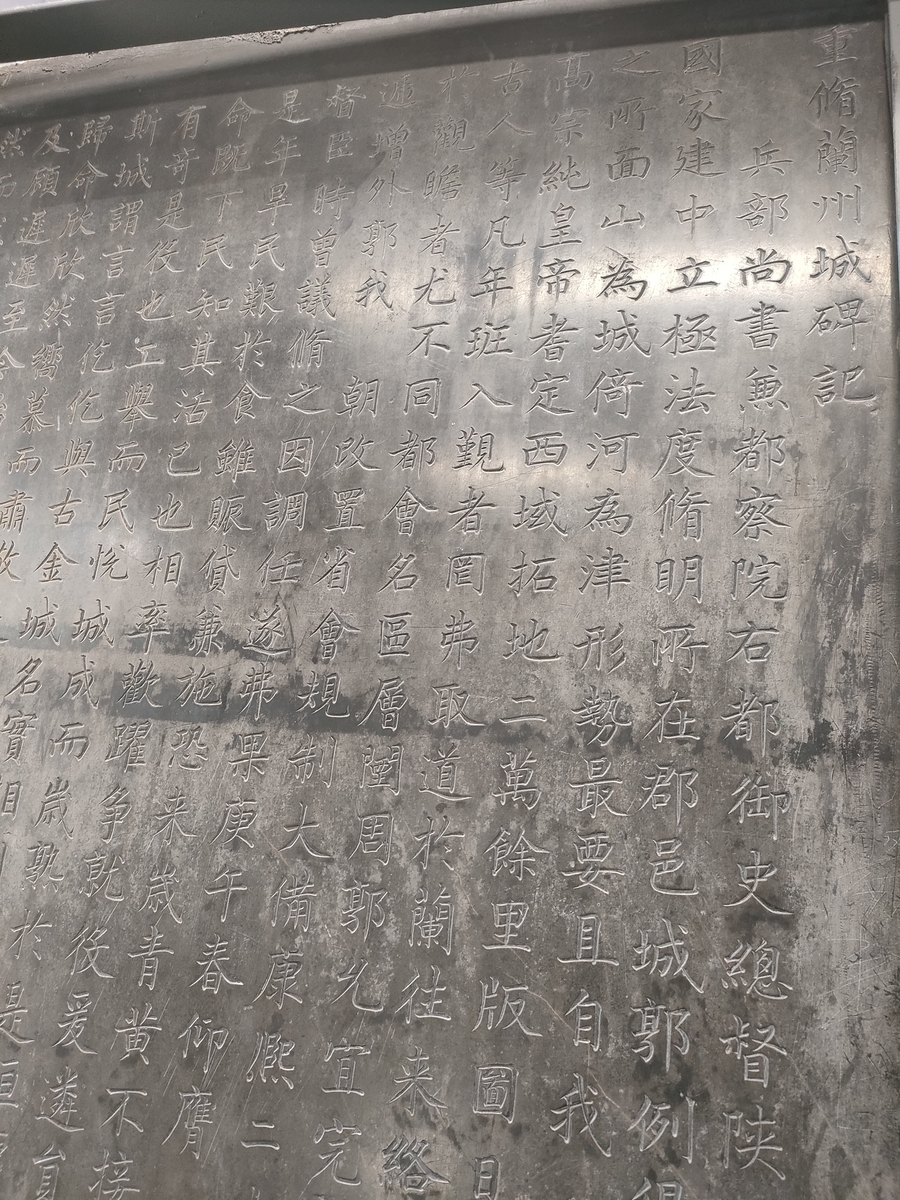 重脩蘭州城碑記
兵部尚書兼都察院右都御史總督陝
國家建中立極法度脩明所在郡邑城郭例得
之所面山為城倚河為津形勢最要且自我
高宗純皇帝耆定西域拓地二萬餘里版圖日
古人等凡年班入覲者罔弗取道於蘭往来絡
於觀瞻者尤不同都會名區層闉周郭允宜完
遞增外郭我朝改置省會規制大備康熙二
督臣時曾議脩之因調任遂弗果庚午春仰膺
是年旱民艱於食雖賑貸兼施恐来歳青黄不接
命既下民知其活己也相率歡躍争就役爰遴員
有奇是役也工舉而民恱城成而歳熟於是
斯城謂言言仡仡與古金城名實相
歸命欣欣然嚮慕而肅
及願遲遲至今
然而